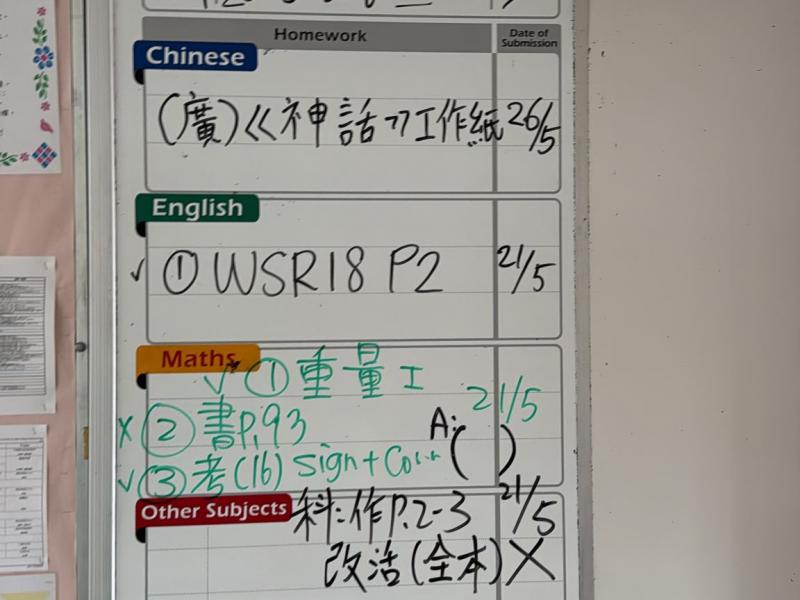 Homework
Date of Submission
Chinese
(廣)《神話》工作紙 26/5
English
✓ ① WSR18 P2 21/5
Maths
✓ ① 重量 I
21/5
X ② 書P.93
A: ( )
✓ ③ 考(16) sign+Corr
Other Subjects
科:作P.2-3 21/5
改活(全本) X